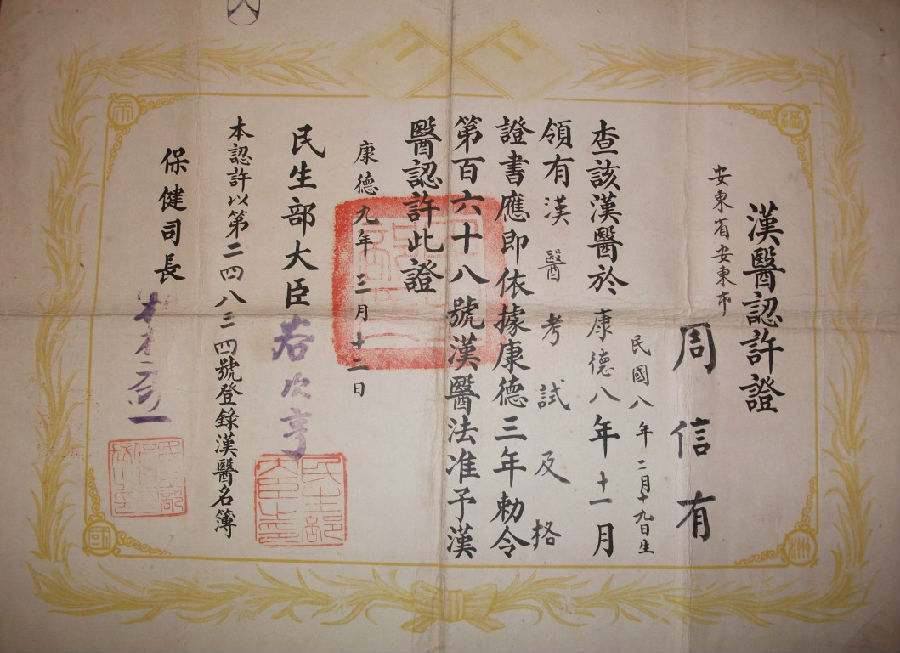 漢醫認許證
安東省安東市
周信有
民國八年二月十九日生
查該漢醫於康德八年十一月
領有漢醫考試及格
證書應即依據康德三年勅令
第百六十八號漢醫法准予漢
醫認許此證
康德九年三月十二日
民生部大臣
本認許以第二四八三四號登錄漢醫名簿
保健司長
民生部大臣之印